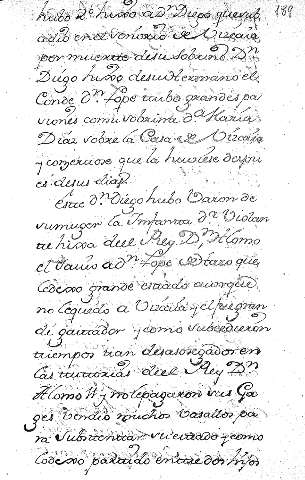 189
hubo dº hixo a dⁿ Diego que sub
cedio en el Senorio de Vizcaia
por muerte de su sobrino Dⁿ
Diego hixo de su Hermano el
Conde Dⁿ Lope tubo grandes pa
siones con su sobrina Dª Maria
Diaz sobre la Casa de Vizcaia
y que la huviese despu
es de sus dias
Este dⁿ Diego hubo Varon de
su muger la Infanta dª Violan
te hixa del Rey Dⁿ Alonso
el Savio a dⁿ Lope que
le dexo grande estado aunque
no le quedo a Vizcaia y el fue gran
de gastador y como subcedieron
tiempos tan desasosegados en
las tutorias del Rey Dⁿ
Alonso 11 y no le pagaron sus Ga
ges vendio muchos vasallos pa
ra substentar su estado y como
lo dexo partido entre dos hijos